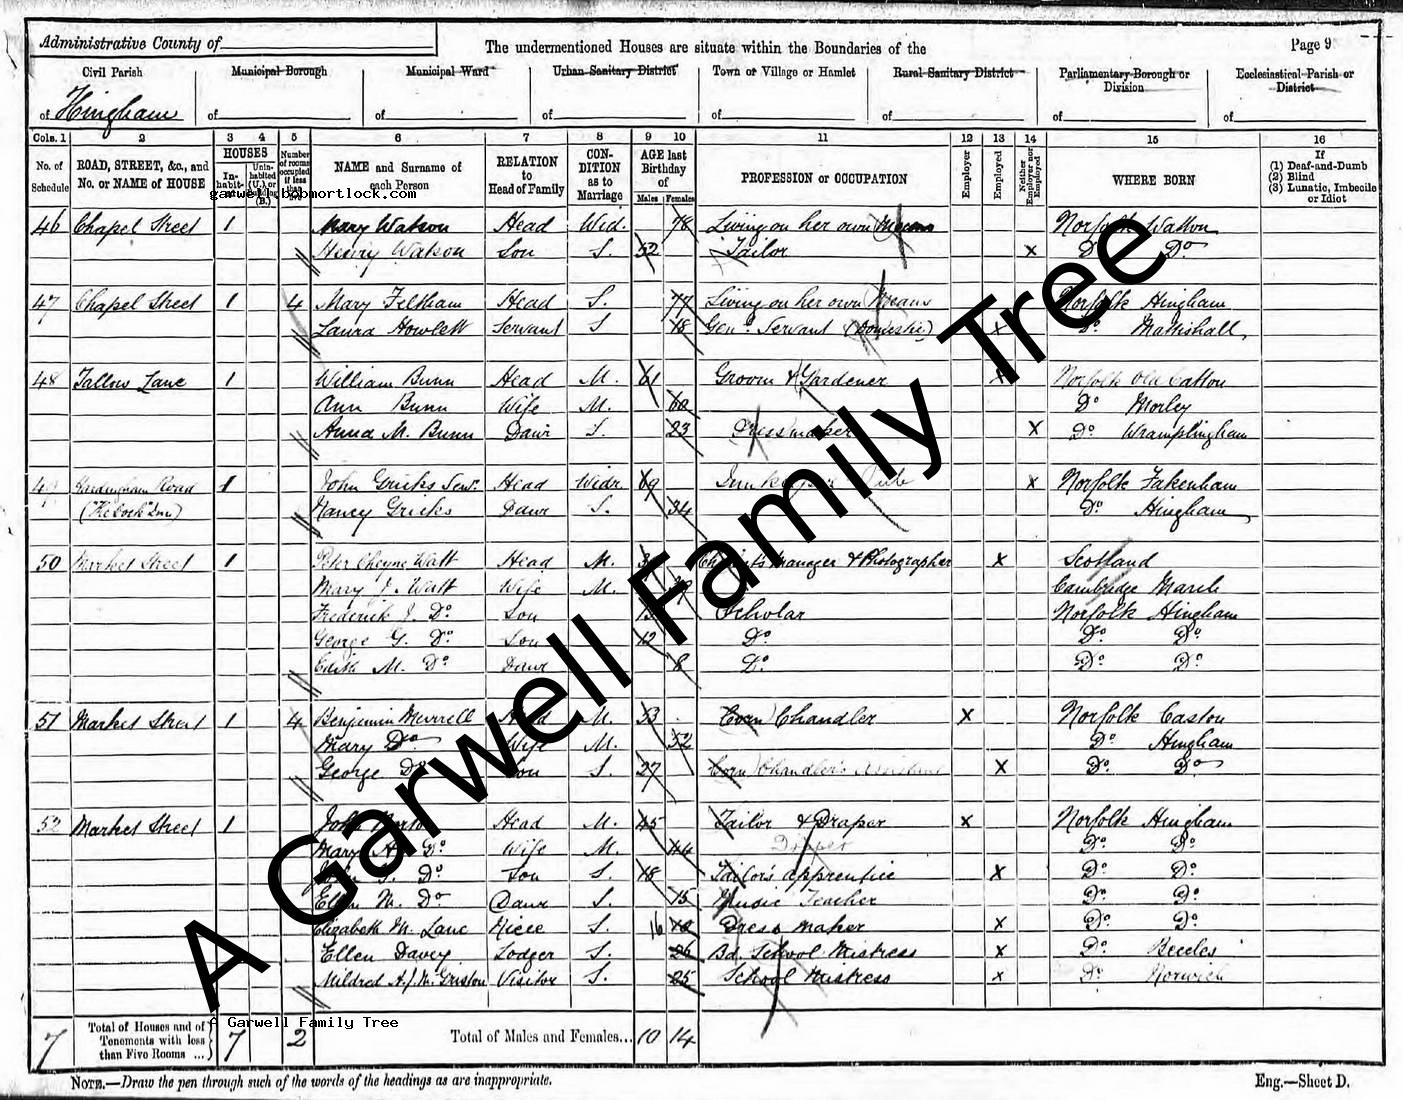 Administrative County of
The undermentioned Houses are situate within the Boundaries of the
Page 9
Civil Parish Municipal Borough Municipal Ward Urban Sanitary District Town or Village or Hamlet Rural Sanitary District Parliamentary Borough or Division Ecclesiastical Parish or District
of Hingham of of of of of of of
Cols. 1 2 3 4 5 6 7 8 9 10 11 12 13 14 15 16
No. of Schedule ROAD, STREET, &c., and No. or NAME of HOUSE HOUSES In-habit- Unin-habited (U.) or (B.) Number of rooms occupied if less than NAME and Surname of each Person RELATION to Head of Family CON-DITION as to Marriage AGE last Birthday of Males Females PROFESSION or OCCUPATION Employer Employed Neither Employer nor Employed WHERE BORN If (1) Deaf-and-Dumb (2) Blind (3) Lunatic, Imbecile or Idiot
garwell.bobmortlock.com
46 Chapel Street 1 Mary Watson Head Wid. 78 Living on her own Means Norfolk Watton
Henry Watson Son S. 52 Tailor X Do Do
47 Chapel Street 1 4 Mary Feltham Head S. 77 Living on her own Means Norfolk Hingham
Laura Howlett Servant S 18 Genl Servant (Domestic) X Do Mattishall
48 Tallow Lane 1 William Bunn Head M. 61 Groom & Gardener X Norfolk Old Catton
Ann Bunn Wife M. 60 Do Morley
Anna M. Bunn Daur S. 23 Dressmaker X Do Wramplingham
49 Hardingham Road 1 John Gricks Senr Head Widr. 69 X Norfolk Fakenham
("The Cock" Inn) Nancy Gricks Daur S. 34 Do Hingham
50 Market Street 1 Peter Cheyne Watt Head M. Manager & Photographer X Scotland
Mary J. Watt Wife M. 39 Cambridge March
Frederick J. Do Son Scholar Norfolk Hingham
George G. Do Son 12 Do Do Do
Edith M. Do Daur 8 Do Do Do
51 Market Street 1 4 Benjamin Murrell Head M. 53 (Corn) Chandler X Norfolk Caston
Mary Do Wife M. 52 Do Hingham
George Do Son S. 27 (Corn) Chandler's Assistant X Do Do
52 Market Street 1 John Head M. 45 Tailor & Draper X Norfolk Hingham
Mary A. Do Wife M. 44 Draper Do Do
Do Son S. 18 Tailor's apprentice X Do Do
Ellen M. Do Daur S. 15 Music Teacher Do Do
Elizabeth M. Lane Niece S. 16 Dress Maker X Do Do
Ellen Davey Lodger S. 26 Bd. School Mistress X Do Beccles
Mildred A. J. M. Griston Visitor S. 25 School Mistress X Do Norwich
A Garwell Family Tree
A Garwell Family Tree
7 Total of Houses and of Tenements with less than Five Rooms ... 7 2 Total of Males and Females... 10 14
NOTE.—Draw the pen through such of the words of the headings as are inappropriate.
Eng.—Sheet D.